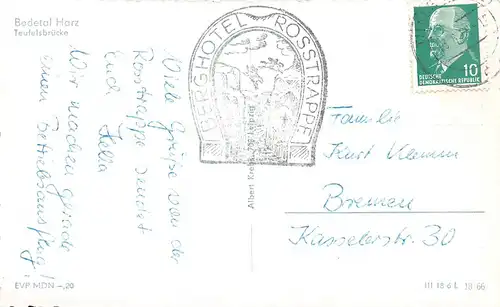 Bodetal Harz
Teufelsbrücke
Viele Grüße von der
Rosstrappe sendet
Euch Felia
Wir machen gerade
einen Betriebsausflug!
BERGHOTEL ROSSTRAPPE
10
DEUTSCHE
DEMOKRATISCHE REPUBLIK
Familie
Kurt Klamm
Bremen
Kasselerstr. 30
Albert
EVP MDN -,20
III 18 6 L 66